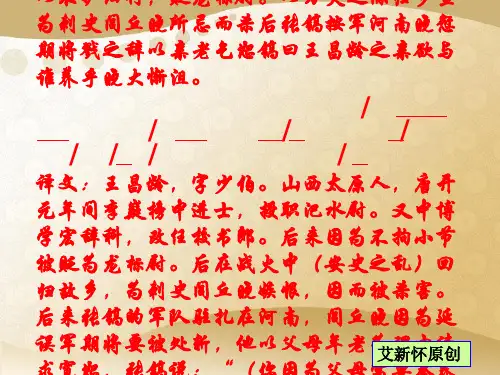 为刺史间丘晓所忌而杀后张镐按军河南晓愆
期将戮之辞以亲老乞恕镐曰王昌龄之亲欲与
谁养乎晓大惭沮。
译文：王昌龄，字少伯。山西太原人，唐开
元年间李嶷榜中进士，授职汜水尉。又中博
学宏辞科，改任校书郎。后来因为不拘小节
被贬为龙标尉。后在战火中（安史之乱）回
归故乡，为刺史间丘晓嫉恨，因而被杀害。
后来张镐的军队驻扎在河南，间丘晓因为延
误军期将要被处斩，他以父母年老
求宽恕，张镐说：“（你因为父母
艾新怀原创